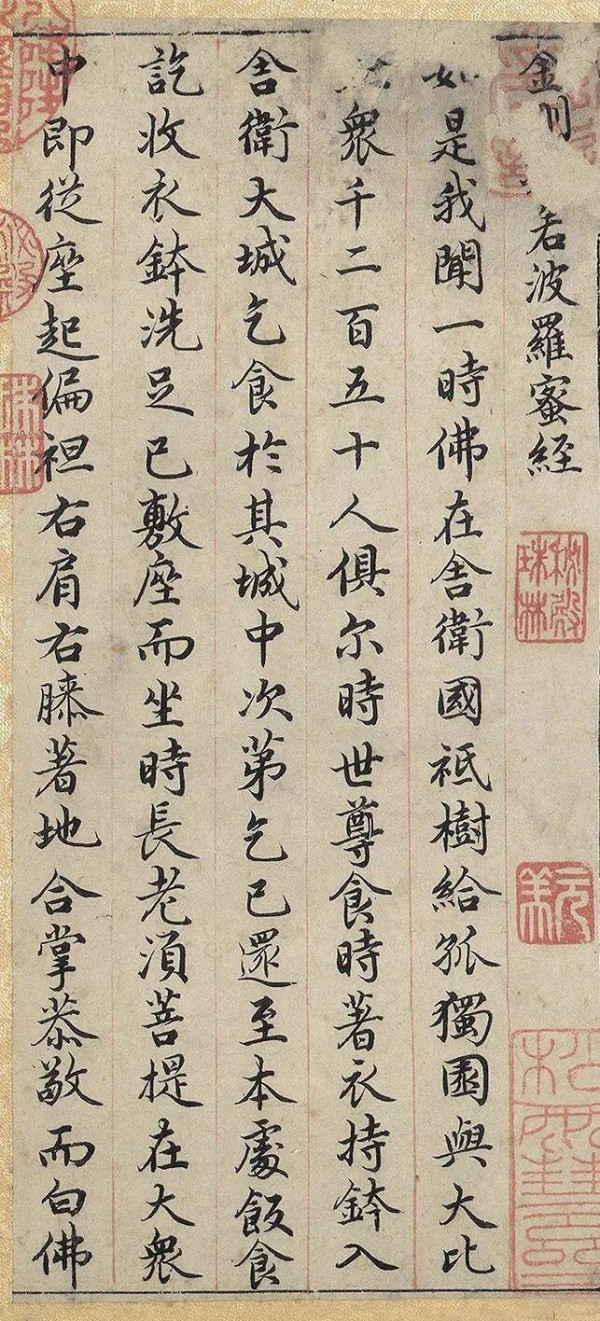 金剛 若波羅蜜經
如是我聞一時佛在舍衛國祇樹給孤獨園與大比
衆千二百五十人俱尔時世尊食時著衣持鉢入
舍衛大城乞食於其城中次第乞已還至本處飯食
訖收衣鉢洗足已敷座而坐時長老湏菩提在大衆
中即從座起偏袒右肩右膝著地合掌恭敬而白佛
秘殿珠林